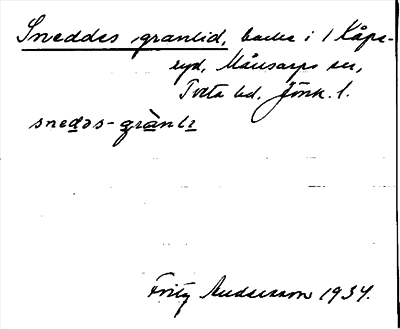 Sneddes granlid, backe i 1 Kåpe-
ryd, Månsarps sn,
Tveta hd. Jönk. l.
snedəs-grànli
Fritz Andersson 1934.